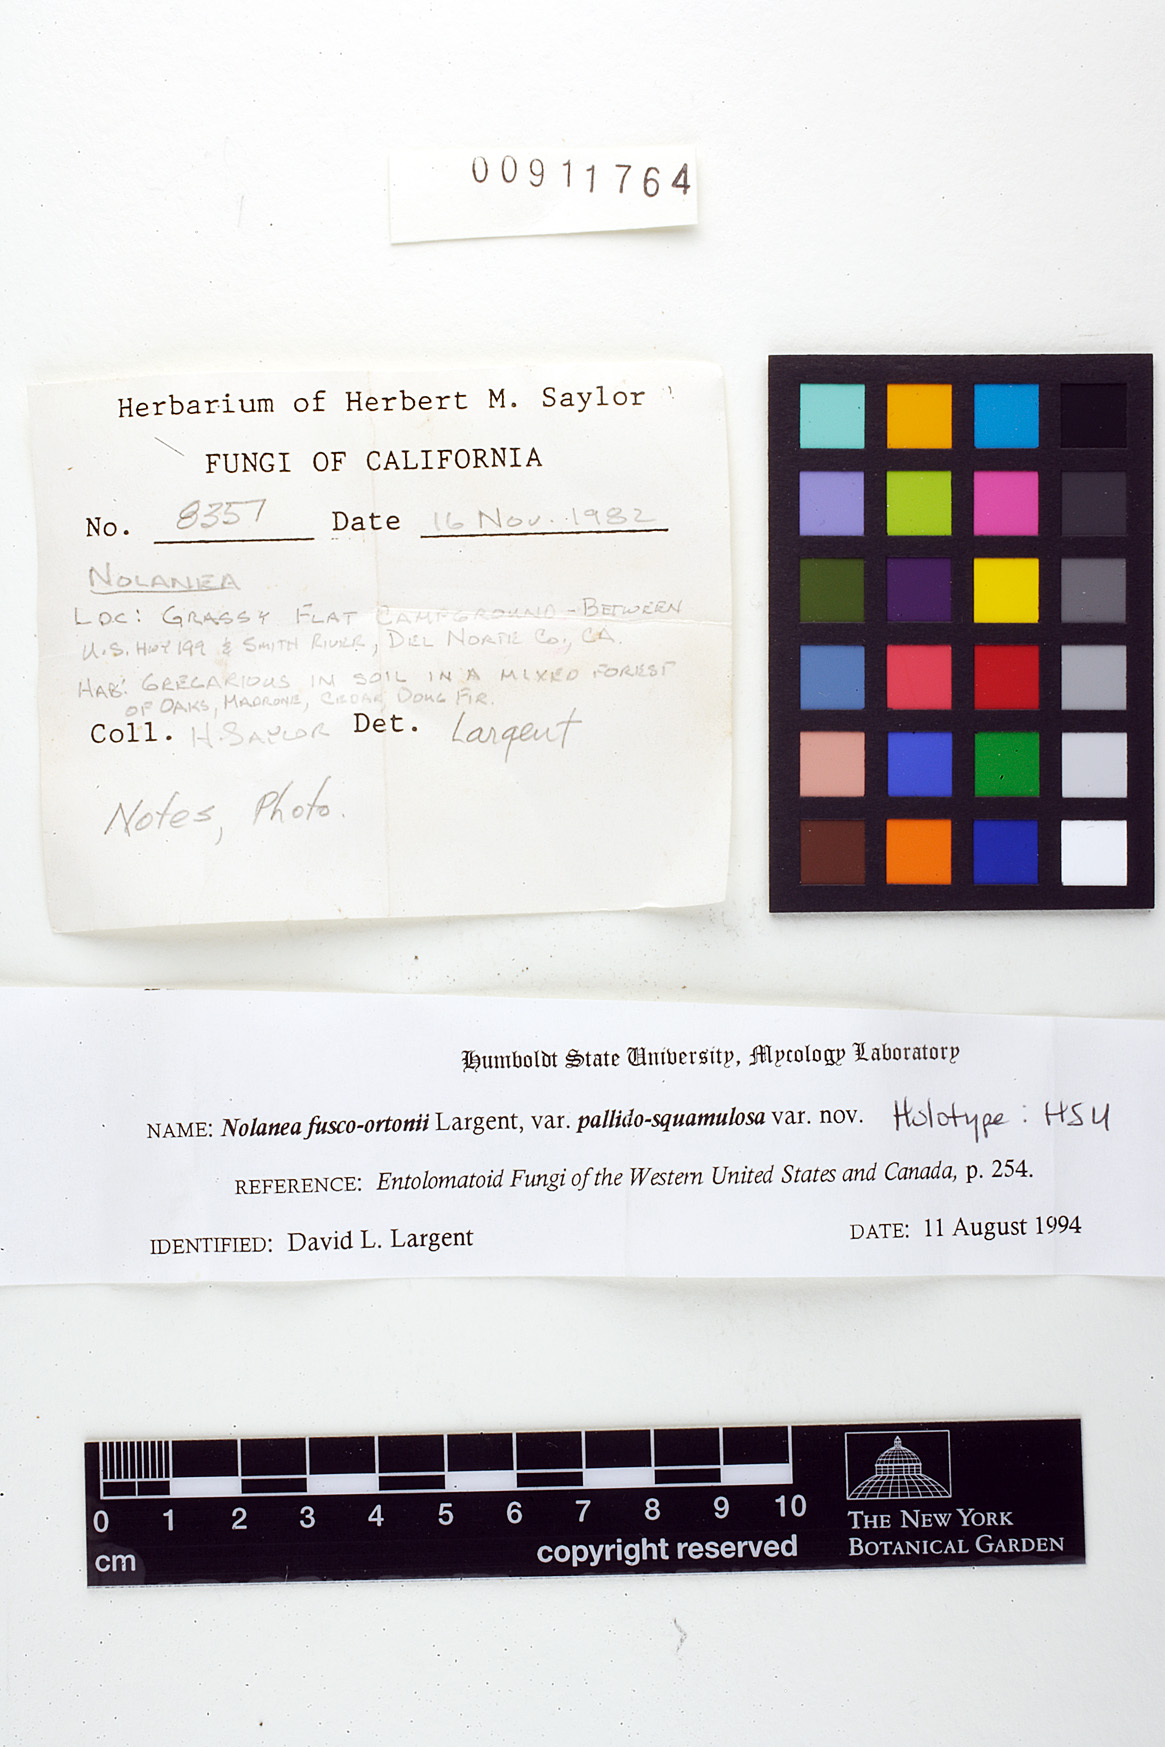 00911764
Herbarium of Herbert M. Saylor
FUNGI OF CALIFORNIA
No. 8357 Date 16 Nov. 1982
NOLANEA
LOC: GRASSY FLAT CAMPGROUND - BETWEEN
U.S. HWY 199 & SMITH RIVER, DEL NORTE CO., CA.
HAB: GREGARIOUS IN SOIL IN A MIXED FOREST
OF OAKS, MADRONE, CEDAR, DOUG FIR.
Coll. H. SAYLOR Det. Largent
Notes, Photo.
Humboldt State University, Mycology Laboratory
NAME: Nolanea fusco-ortonii Largent, var. pallido-squamulosa var. nov. Holotype: HSU
REFERENCE: Entolomatoid Fungi of the Western United States and Canada, p. 254.
IDENTIFIED: David L. Largent DATE: 11 August 1994
0 1 2 3 4 5 6 7 8 9 10
cm copyright reserved
THE NEW YORK
BOTANICAL GARDEN